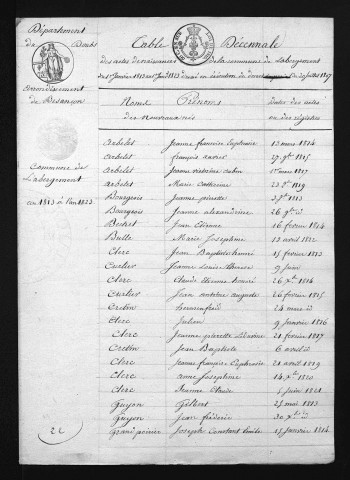 Département
du Doubs
Arrondissement
de Besançon
Commune de
Labergement
an 1813 à l'an 1823
Table Décennale
des actes de naissances de la commune de Labergement
du 1er Janvier 1813 au 1er Janvier 1823 dressé en exécution du décret du 20 juillet 1807
Noms des nouveaux nés Prénoms Dates des actes ou des registres
Arbelet Jeanne françoise Euphrasie 13 mars 1814
Arbelet françois xavier 27 9bre 1815
Arbelet Jeanne victoire 1er mars 1817
Arbelet Marie Catherine 23 1819
Bourgeois Jeanne pierrette 1813
Bourgeois Jeanne alexandrine 26 9bre id
Bechet Jean Etienne 16 fevrier 1814
Bulle Marie Josephine 13 avril 1822
Clerc Jean Baptiste henri 15 fevrier 1813
Cuelier Jeanne Louise Therese 9 juin
Clerc Claude Etienne honoré 26 1814
Cuelier Jean antoine auguste 26 fevrier 1815
Cretin 24 mars id
Clerc Julien 9 Janvier 1816
Clerc Jeanne pierrette 21 fevrier 1817
Cretin Jean Baptiste 6 avril id
Clerc Jeanne françoise Euphrasie 21 avril 1819
Clerc anne Josephine 14 1820
Clerc Jeanne Claude 1821
Guyon Gilbert 25 mai 1813
Guyon Jean frédéric 30 id
Grand poirier Joseph Constant Emile 15 Janvier 1814